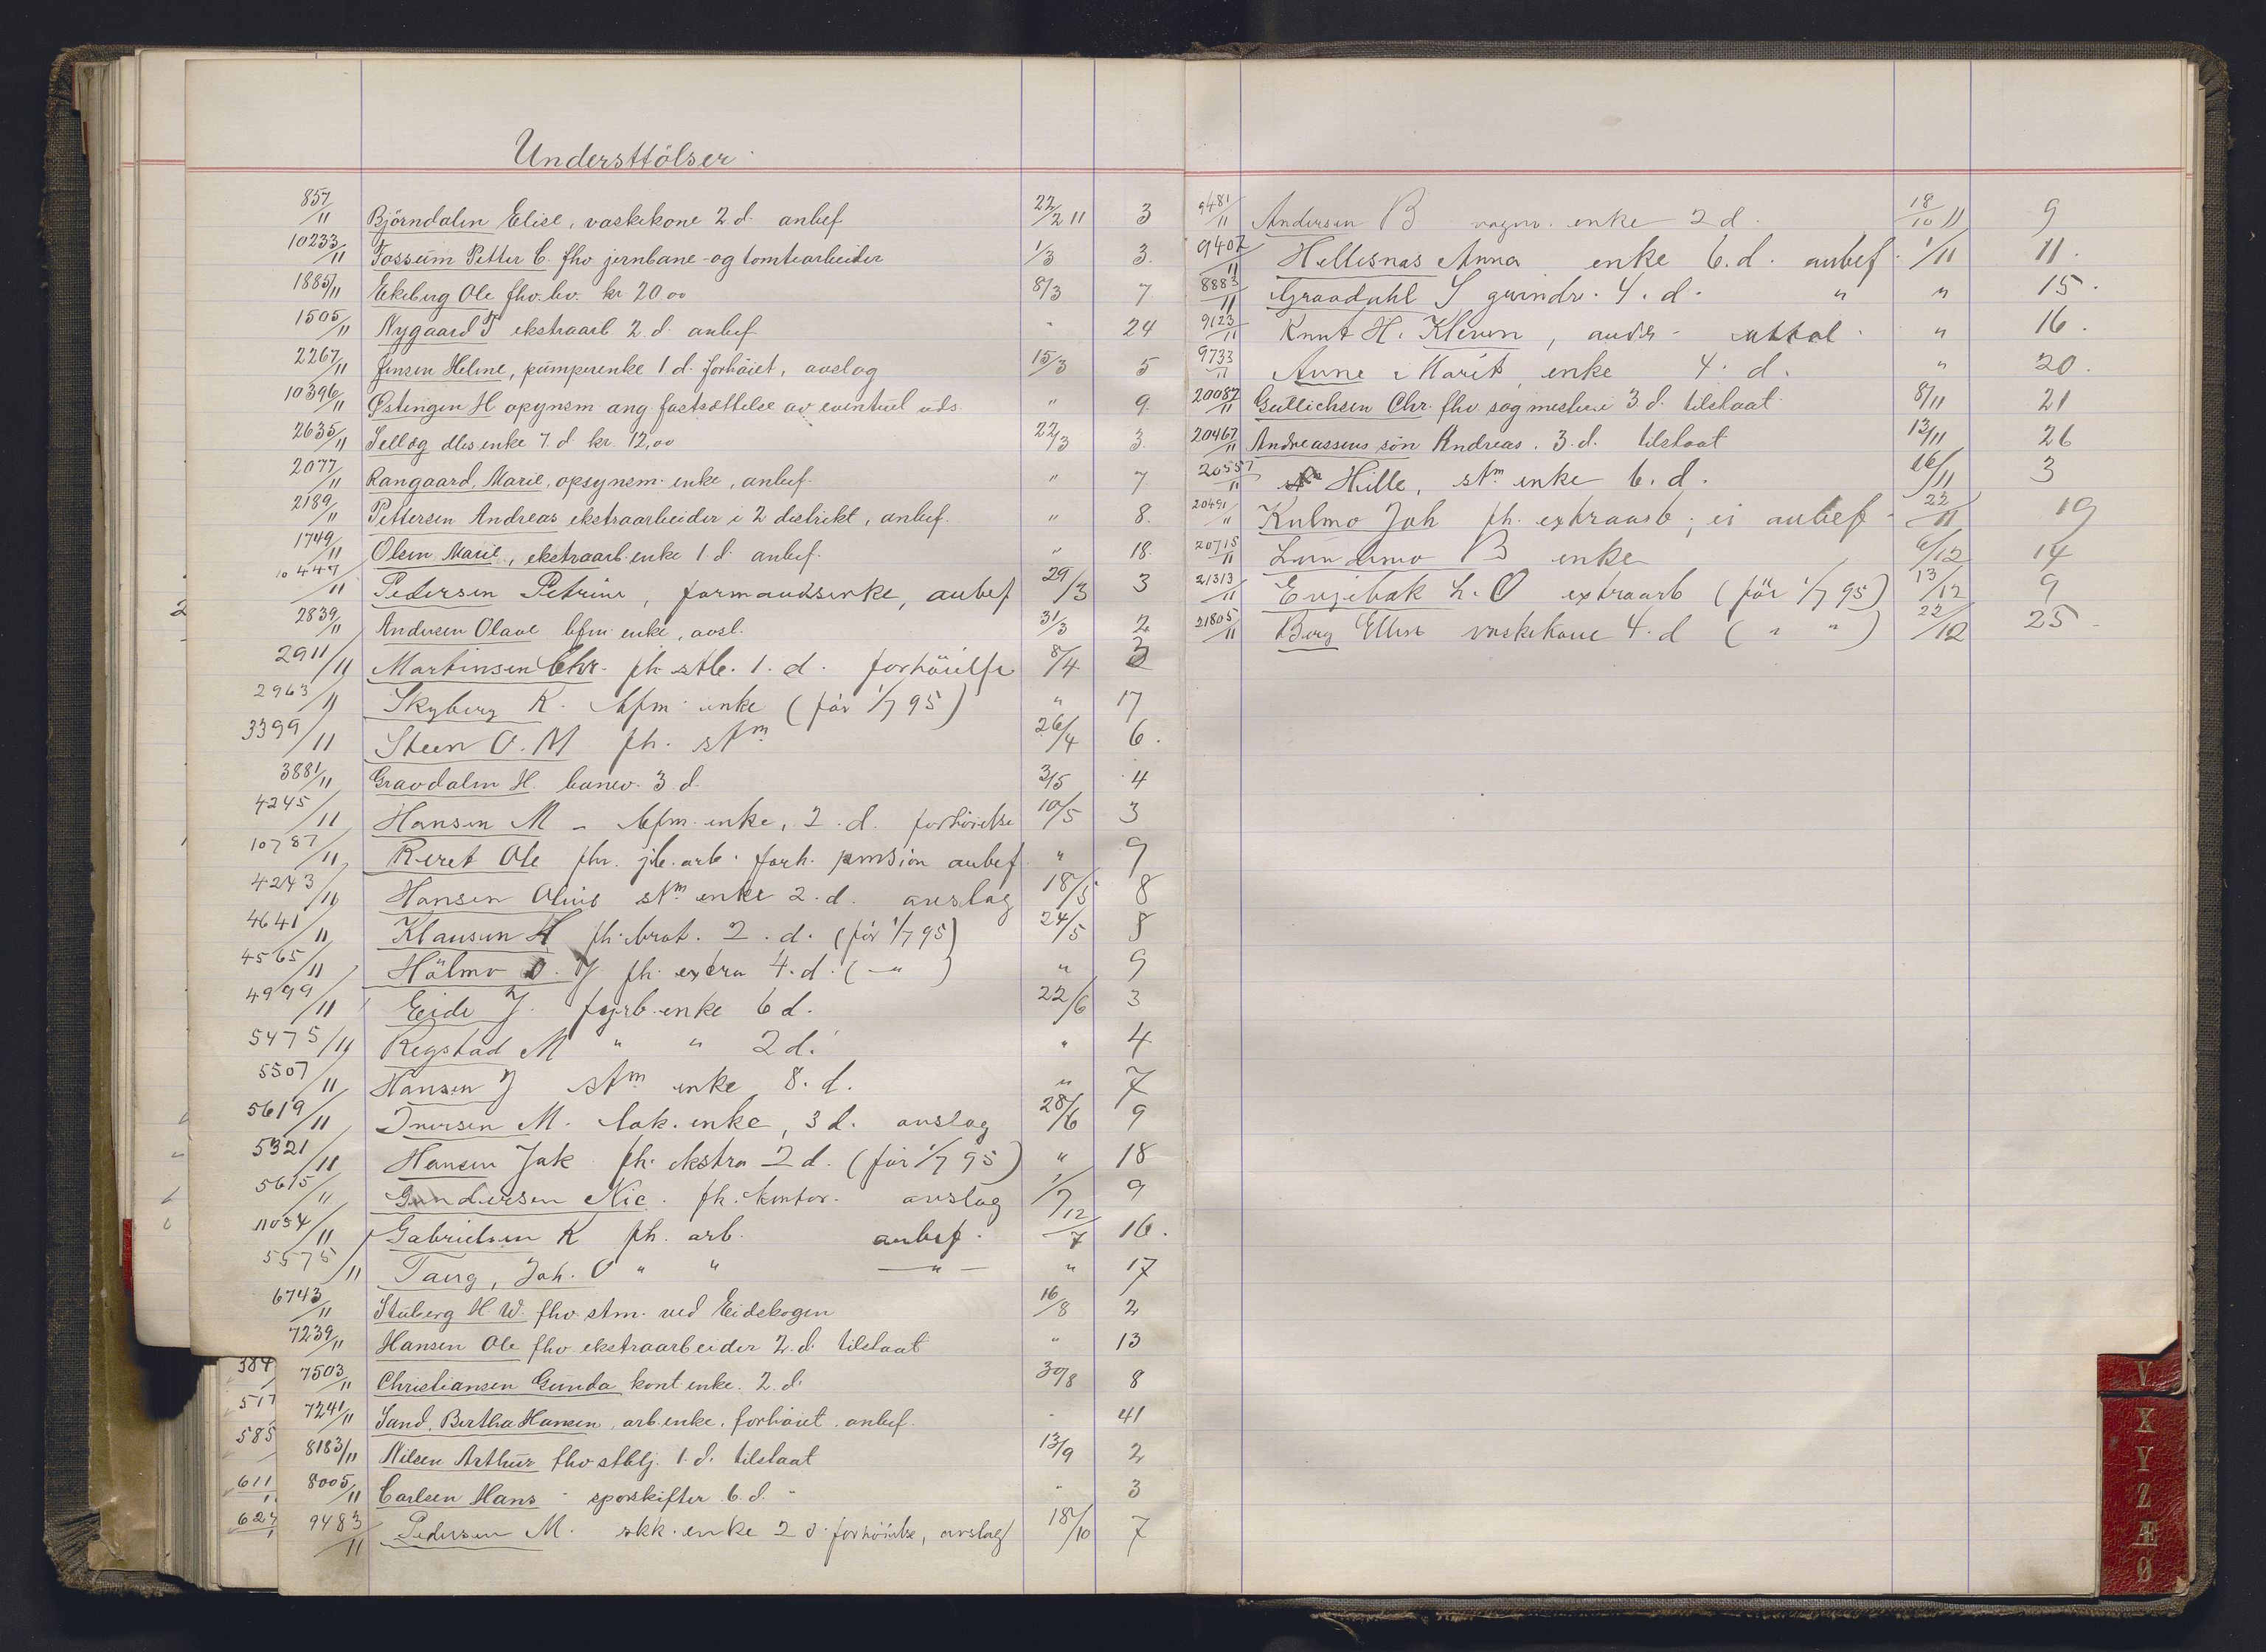 Understtölser
857/11 Björndalen Elise, vaskekone 2 d. anbef 22/2 11 3
10233/11 Fossum Petter C. fhv jernbane- og tomtearbeider 1/3 3.
1885/11 Ekeberg Ole fhv. bv. kr 20.00 8/3 7
1505/11 Nygaard T ekstraarb. 2. d. anbef. " 24
2267/11 Jensen Heline, pumperenke 1 d. forhöiet, avslag 15/3 5
10396/11 Østengen H opsynsm ang. fastsættelse av eventuel uds. " 9.
2635/11 Sellæg enke 7. d. kr. 12,00 22/3 3.
2077/11 Rangaard, Marie, opsynsm. enke, anbef. " 7
2189/11 Pettersen Andreas ekstraarbeider i 2 distrikt, anbef. " 8.
1749/11 Olsen Marie, ekstraarb. enke 1. d. anbef. " 18.
10447/11 Pedersen Petrine, formandsenke, anbef 29/3 3
2839/11 Andersen Olave bfm. enke, avsl. 31/3 2
2911/11 Martinsen Chr. fh. stb. 1. d. forhöielse 8/4 3
2963/11 Skyberg K. bfm. enke (för 1/7 95) " 17
3399/11 Steen O. M fh. stm 26/4 6.
3881/11 Gravdalen H. banev. 3 d. 3/5 4
4245/11 Hansen M - bfm. enke, 2. d. forhöielse 10/5 3
10787/11 Reret Ole fhv. jb. arb. forh. pension anbef. " 9
4243/11 Hansen stm enke 2. d. avslag 18/5 8
4641/11 Klausen H fh. brat. 2. d. (för 1/7 95) 24/5 8
4565/11 Hölmo O. J fh. extra 4. d. ( — " ) " 9
4999/11 Eide J. fyrb. enke 6 d. 22/6 3
5475/11 Regstad M " " 2 d. " 4
5507/11 Hansen J stm enke 8. d. " 7
5619/11 Iversen M. lok. enke, 3 d. avslag 28/6 9
5321/11 Hansen Jak. fh. ekstra 2 d. (för 1/7 95) " 18
5615/11 Gundersen Nic. fh. kontor. avslag 1/7 9
11054/11 Gabrielsen K fh. arb. anbef. 12/7 16.
5575/11 Taerg, Joh. O " " — " — " 17
6743/11 Stuberg H. W. fhv. stm. ved Eidskogen 16/8 2
7239/11 Hansen Ole fhv. ekstraarbeider 2. d. tilstaat " 13
384 7503/11 Christiansen Gunda kont. enke. 2. d. 30/8 8
517 7241/11 Sand, Bertha Hansen, arb. enke, forhöiet, anbef. " 41
585 8183/11 Nilsen Arthur fhv stbtj. 1. d. tilstaat 13/9 2
611 8005/11 Carlsen Hans " sporskifter 6. d. " " 3
627 9483/11 Pedersen M. skk. enke 2 d. forhöielse, avslag 18/10 7
9481/11 Andersen B vogn. enke 2 d. 18/10 11 9
9407/11 Hellesnas Anna enke 6. d. anbef. 1/11 11.
8883/11 Graadahl S grindv. 4. d. " " 15.
9123/11 Knut H. Kleven, " 16.
9733/11 Aune Marit enke 4. d. " 20.
20087/11 Gullichsen Chr. fhv. sagmester i 3 d. tilstaat 8/11 21
20467/11 Andreassens sön Andreas. 3. d. tilstaat 13/11 26
20557/11 Hille, stm enke 6. d. 16/11 3
20491/11 Kulmo Joh fh. extraarb; ei anbef. 22/11 19
20715/11 Lundemo B enke 6/12 14
21313/11 Engebak L. O extraarb (för 1/7 95) 13/12 9
21805/11 Berg Ellen vaskekone 4. d ( " " ) 22/12 25
V
X
Y
Z
Æ
Ø